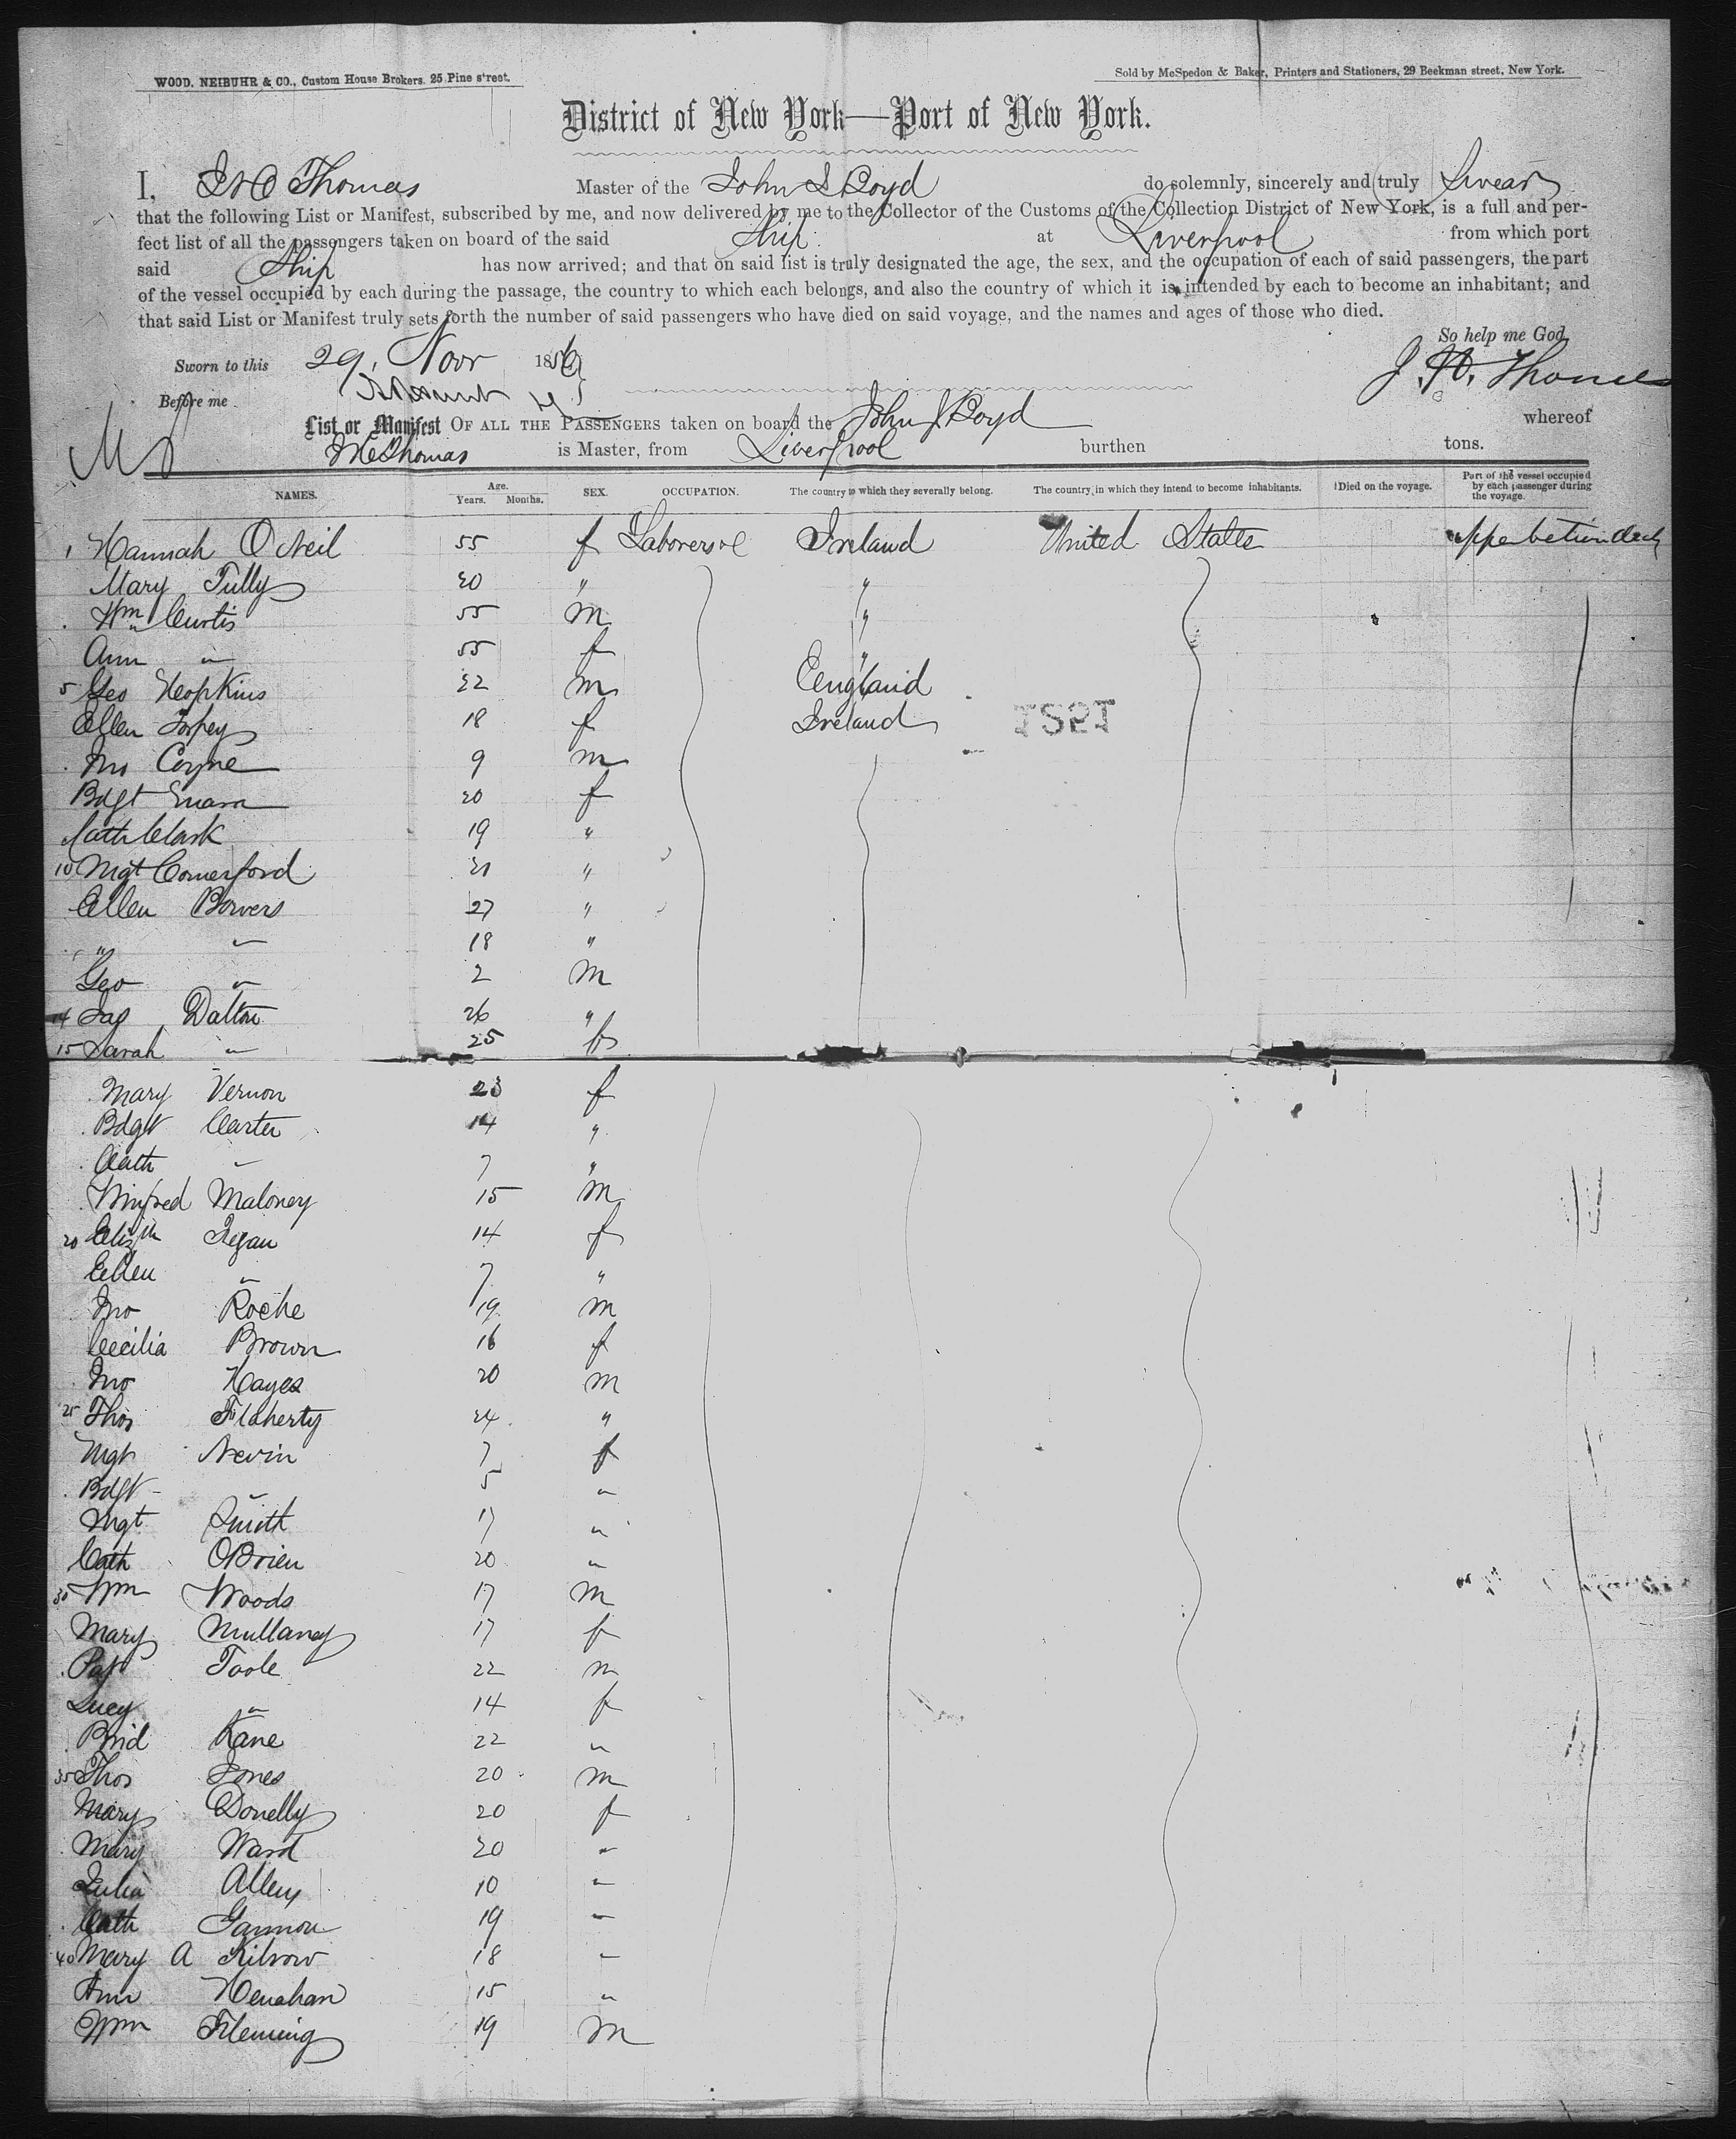 WOOD, NEIBUHR & CO., Custom House Brokers. 25 Pine street.
Sold by McSpedon & Baker, Printers and Stationers, 29 Beekman street, New York.
District of New York—Port of New York.
I, Thomas Master of the John J Boyd do solemnly, sincerely and truly Swear
that the following List or Manifest, subscribed by me, and now delivered by me to the Collector of the Customs of the Collection District of New York, is a full and per-
fect list of all the passengers taken on board of the said Ship at Liverpool from which port
said Ship has now arrived; and that on said list is truly designated the age, the sex, and the occupation of each of said passengers, the part
of the vessel occupied by each during the passage, the country to which each belongs, and also the country of which it is intended by each to become an inhabitant; and
that said List or Manifest truly sets forth the number of said passengers who have died on said voyage, and the names and ages of those who died.
So help me God.
Sworn to this 29, Novr 1856
J. H. Thomas
Before me
List or Manifest OF ALL THE PASSENGERS taken on board the John J Boyd whereof
Thomas is Master, from Liverpool burthen tons.
NAMES. Age. Years. Months. SEX. OCCUPATION. The country to which they severally belong. The country in which they intend to become inhabitants. Died on the voyage. Part of the vessel occupied by each passenger during the voyage.
1 Hannah O Neil 55 f Laborers &c Ireland United States upper betwn deck
Mary Tully 20 " "
Wm Curtis 55 m "
Ann " 55 f "
5 Geo Hopkins 22 m England
Ellen 18 f Ireland
Jno Coyne 9 m
Bdgt 20 f
Cath Clark 19 "
10 Mgt Comerford 21 "
Ellen Bowers 27 "
" " 18 "
Geo " 2 m
14 Jas Dalton 26 "
15 Sarah " 25 f
Mary Vernon 23 f
Bdgt Carter 14 "
Cath " 7 "
Winfred Maloney 15 m
20 Elizth Regan 14 f
Ellen " 7 "
Jno Roche 19 m
Cecilia Brown 16 f
Jno Hayes 20 m
25 Thos Flaherty 24 "
Mgt Nevin 7 f
Bdgt " 5 "
Mgt Smith 17 "
Cath OBrien 20 "
30 Wm Woods 17 m
Mary Mullaney 17 f
Pat Toole 22 m
Lucy " 14 f
Brid Kane 22 "
35 Thos Jones 20 m
Mary Donelly 20 f
Mary Ward 20 "
Julia Allen 10 "
Cath Gannon 19 "
40 Mary A Kilrow 18 "
Ann Henahan 15 "
Wm Fleming 19 m